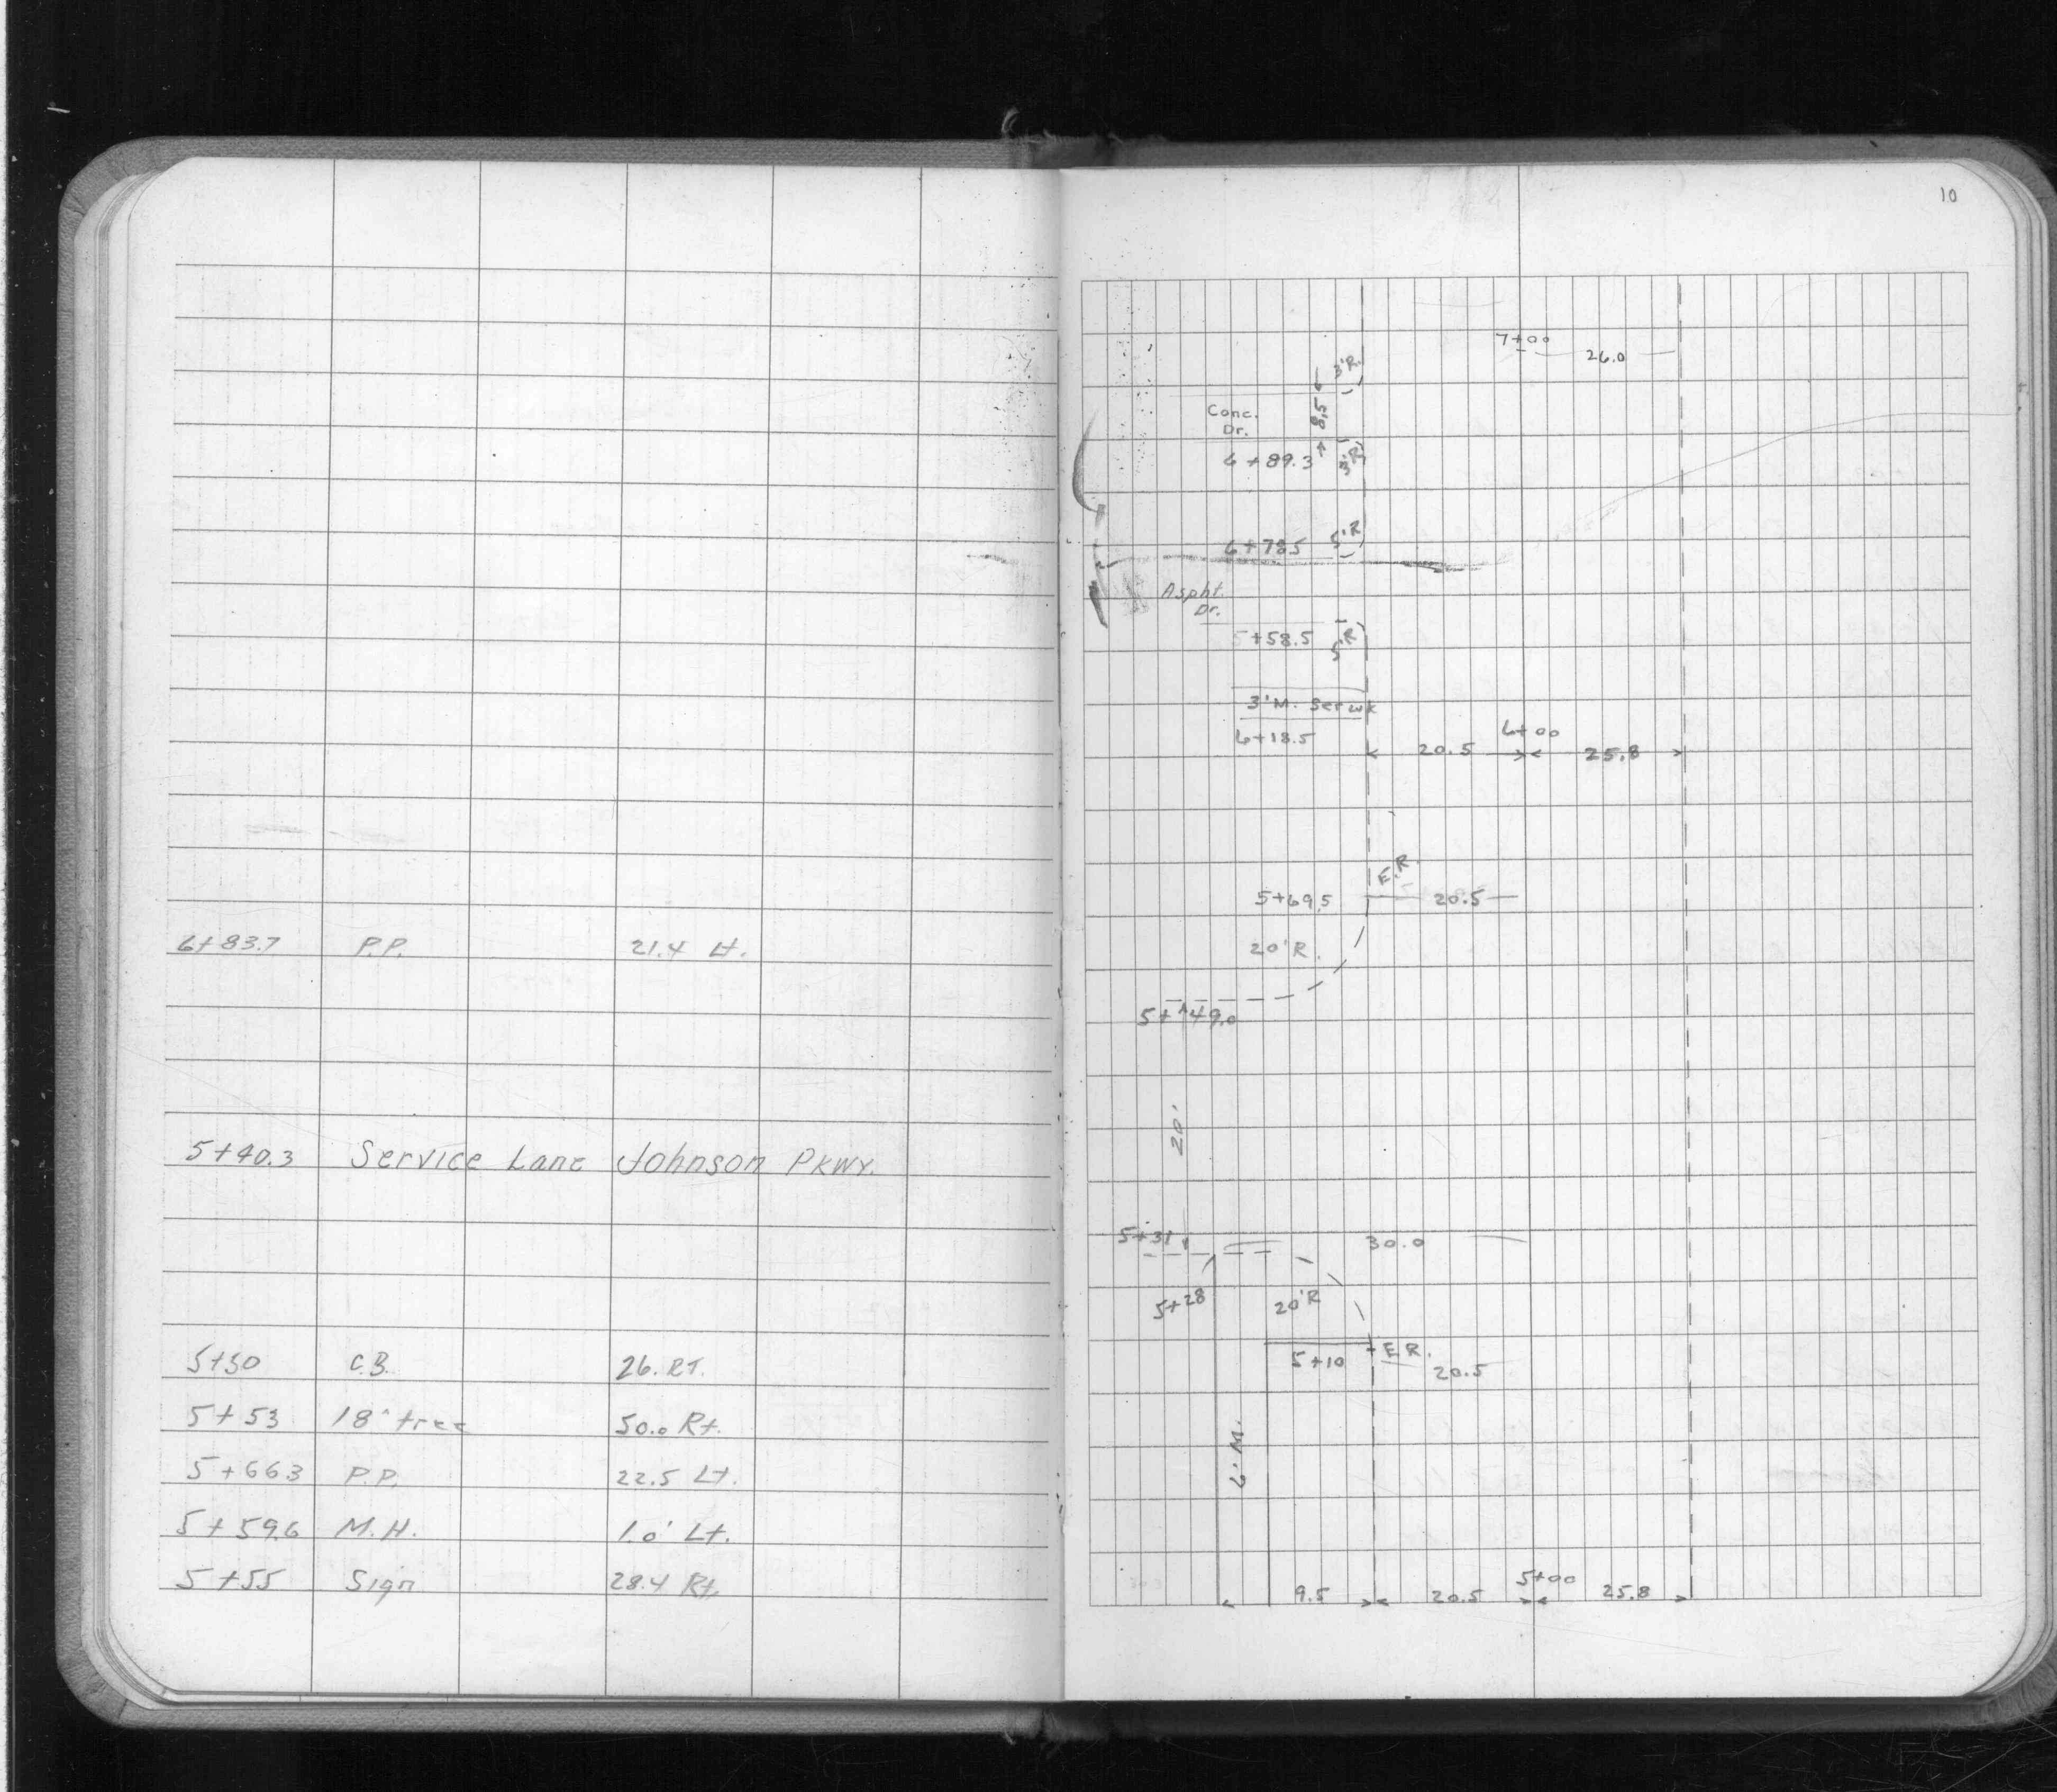 6+83.7 P.P. 21.4 Lt.
5+40.3 Service Lane Johnson Pkwy.
5+50 C.B. 26. RT.
5+53 18" tree 50.0 Rt.
5+66.3 P.P. 22.5 Lt.
5+59.6 M.H. 1.0' Lt.
5+55 Sign 28.4 Rt.
10
7+00
26.0
3'R.
8.5
Conc.
Dr.
6+89.3
3'R
6+78.5 5'R
Aspht.
Dr.
5+58.5 5'R
3'M. Ser wk
6+18.5
6+00
20.5 25.8
E.R.
5+69.5 20.5
20'R.
5+49.0
20'
5+31 30.0
5+28 20'R
5+10 E.R.
20.5
6' M.
5+00
9.5 20.5 25.8